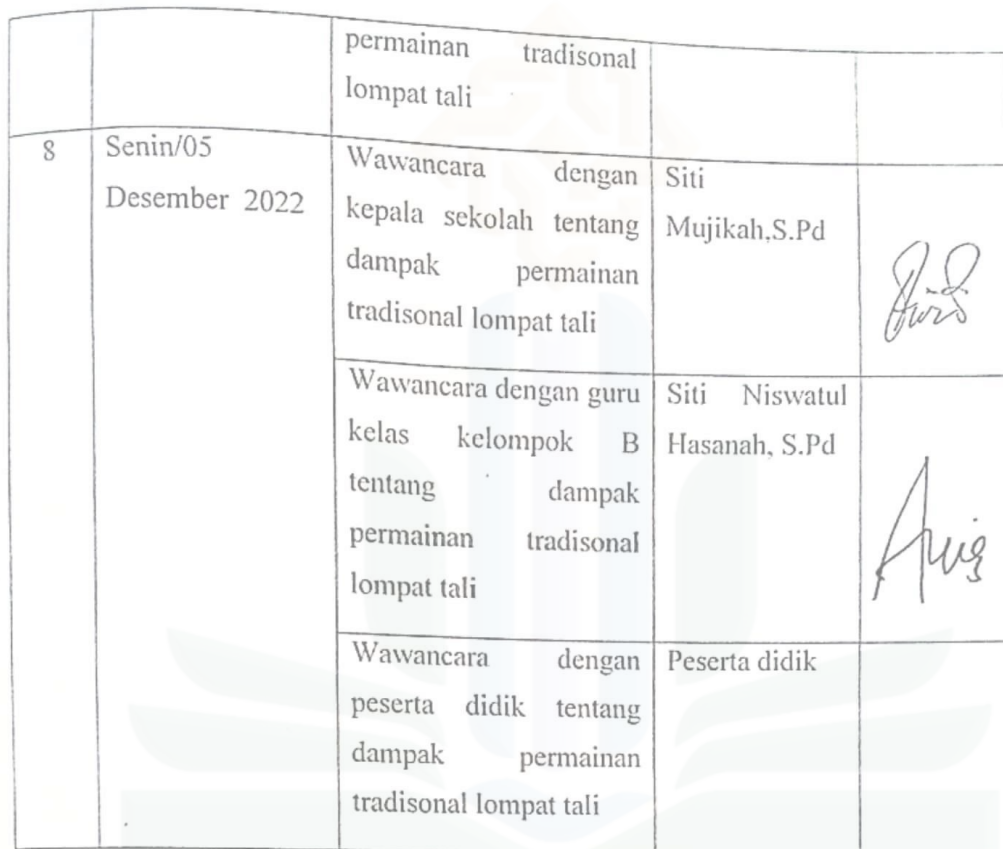 permainan tradisonal
lompat tali
8
Senin/05
Desember 2022
Wawancara dengan
kepala sekolah tentang
dampak permainan
tradisonal lompat tali
Siti
Mujikah,S.Pd
Wawancara dengan guru
kelas kelompok B
tentang dampak
permainan tradisonal
lompat tali
Siti Niswatul
Hasanah, S.Pd
Wawancara dengan
peserta didik tentang
dampak permainan
tradisonal lompat tali
Peserta didik